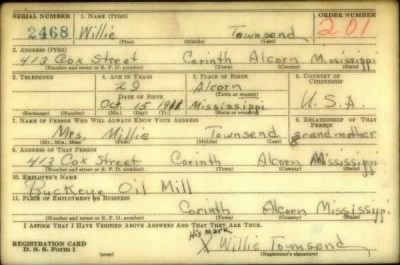 SERIAL NUMBER 1. NAME (Print) ORDER NUMBER
2468 Willie Townsend 201
(First) (Middle) (Last)
2. ADDRESS (Print)
413 Cox Street Corinth Alcorn Mississippi
(Number and street or R. F. D. number) (Town) (County) (State)
3. TELEPHONE 4. AGE IN YEARS 5. PLACE OF BIRTH 6. COUNTRY OF CITIZENSHIP
Alcorn
DATE OF BIRTH (Town or county)
Oct 15 Mississippi U.S.A.
(Exchange) (Number) (Mo.) (Day) (Yr.) (State or country)
7. NAME OF PERSON WHO WILL ALWAYS KNOW YOUR ADDRESS 8. RELATIONSHIP OF THAT PERSON
Mrs. Millie Townsend grandmother
(Mr., Mrs., Miss) (First) (Middle) (Last)
9. ADDRESS OF THAT PERSON
413 Cox Street Corinth Alcorn Mississippi
(Number and street or R. F. D. number) (Town) (County) (State)
10. EMPLOYER'S NAME
Buckeye Oil Mill
11. PLACE OF EMPLOYMENT OR BUSINESS
Corinth Alcorn Mississippi
(Number and street or R. F. D. number) (Town) (County) (State)
I AFFIRM THAT I HAVE VERIFIED ABOVE ANSWERS AND THAT THEY ARE TRUE.
His Mark
REGISTRATION CARD X Willie Townsend
D. S. S. Form 1 (over) (Registrant's signature)